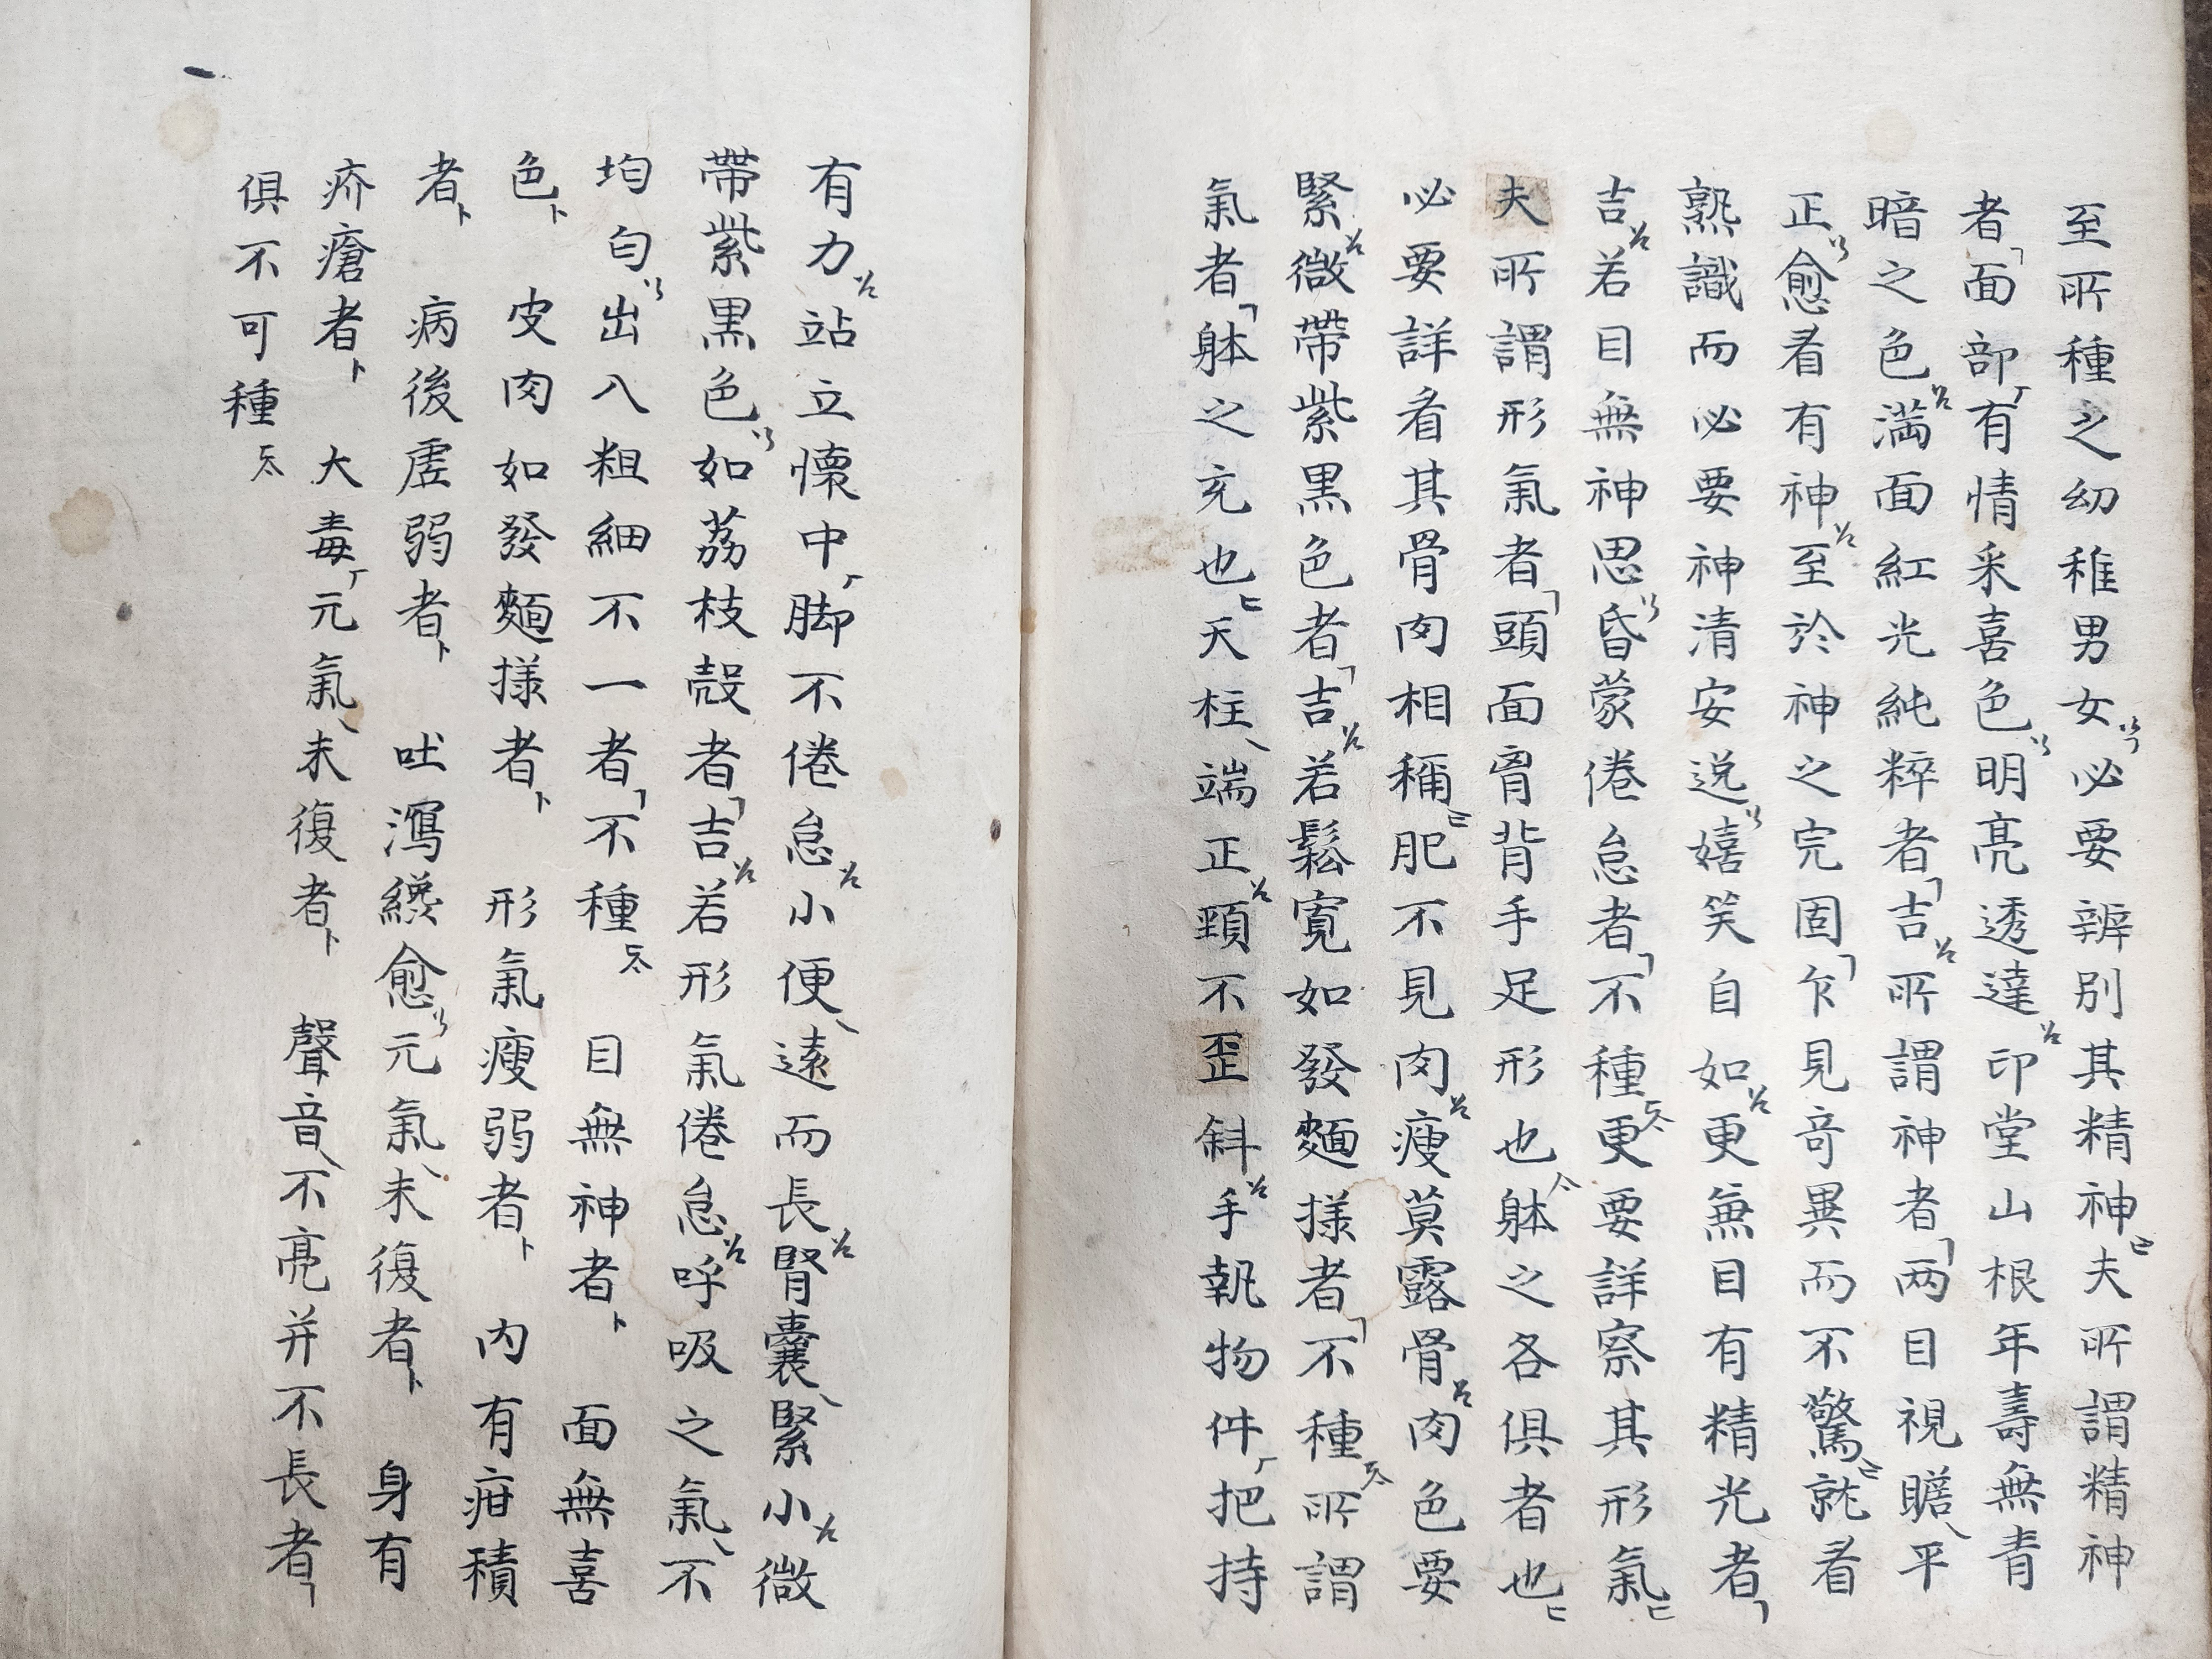 至所種之幼稚男女必要辨別其精神夫所謂精神
者面部有情采喜色明亮透達印堂山根年壽無青
暗之色満面紅光純粹者吉所謂神者两目視瞻平
正愈看有神至於神之完固乍見竒異而不驚就看
熟識而必要神清安逸嬉笑自如更無目有精光者
吉若目無神思昏蒙倦怠者不種更要詳察其形氣
夫所謂形氣者頭面胷背手足形也躰之各俱者也
必要詳看其骨肉相稱肥不見肉瘦莫露骨肉色要
緊微帶紫黒色者吉若鬆寛如發麵様者不種所謂
氣者躰之充也天柱端正頸不歪斜手執物件把持
有力站立懷中脚不倦怠小便遠而長腎囊緊小微
帶紫黒色如荔枝殼者吉若形氣倦怠呼吸之氣不
均匀出入粗細不一者不種 目無神者 面無喜
色 皮肉如發麵様者 形氣瘦弱者 内有疳積
者 病後虛弱者 吐瀉纔愈元氣未復者 身有
疥瘡者 大毒元氣未復者 聲音不亮并不長者
俱不可種